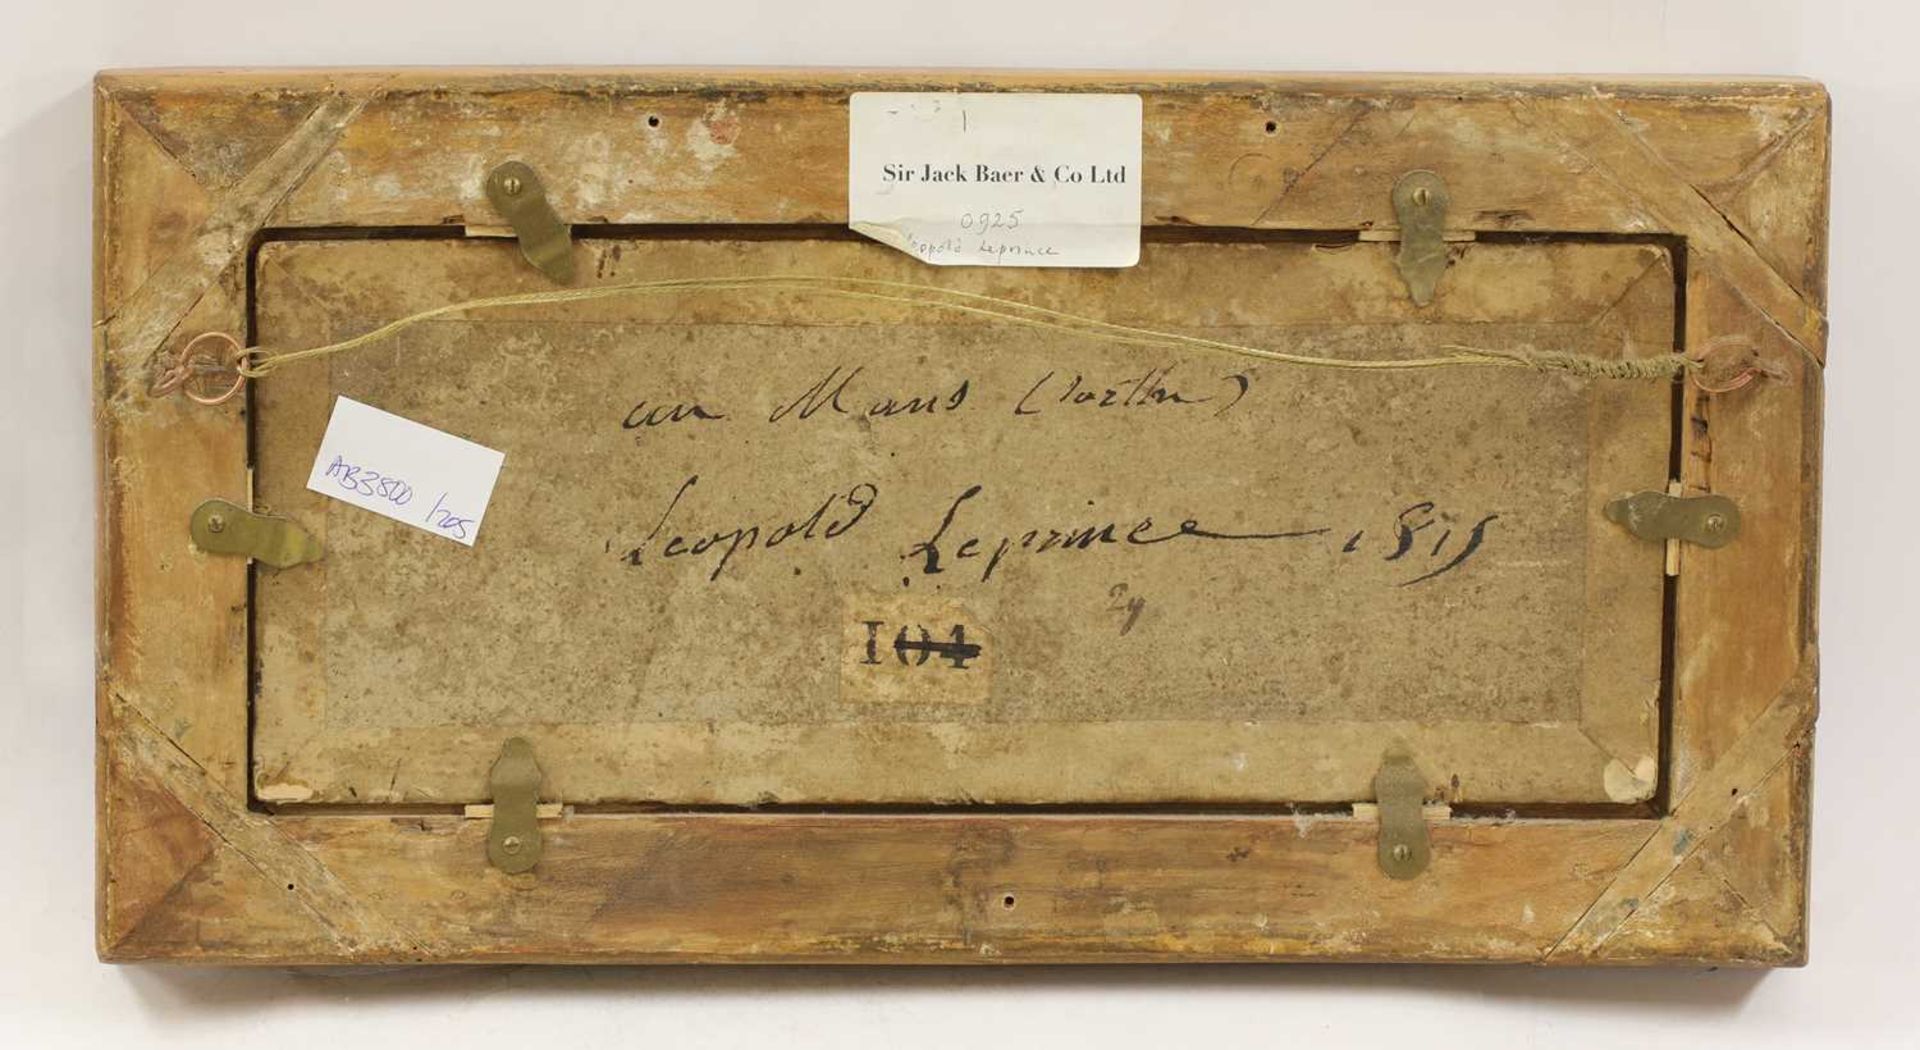 Sir Jack Baer & Co Ltd
0925
Leprince
au Mans (Sarthe)
AB3800 /205
Leopold Leprince 1815
29
104